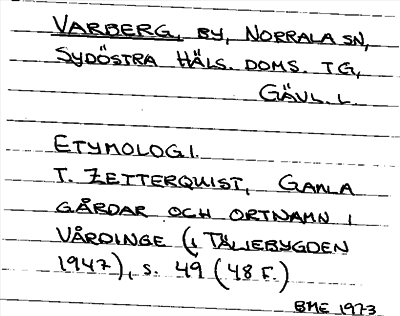 VARBERG, BY, NORRALA SN,
SYDÖSTRA HÄLS. DOMS. TG,
GÄVL. L.
ETYMOLOGI.
T. ZETTERQUIST, GAMLA
GÅRDAR OCH ORTNAMN I
VÅRDINGE (I TÄLJEBYGDEN
1947), S. 49 (48 F.)
BME 1973